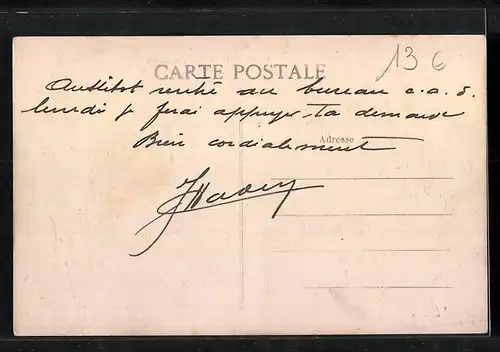 13 €
CARTE POSTALE
Aussitôt rentré au bureau c.a.d.
lundi je ferai appuyer ta demande
Adresse
Bien cordialement